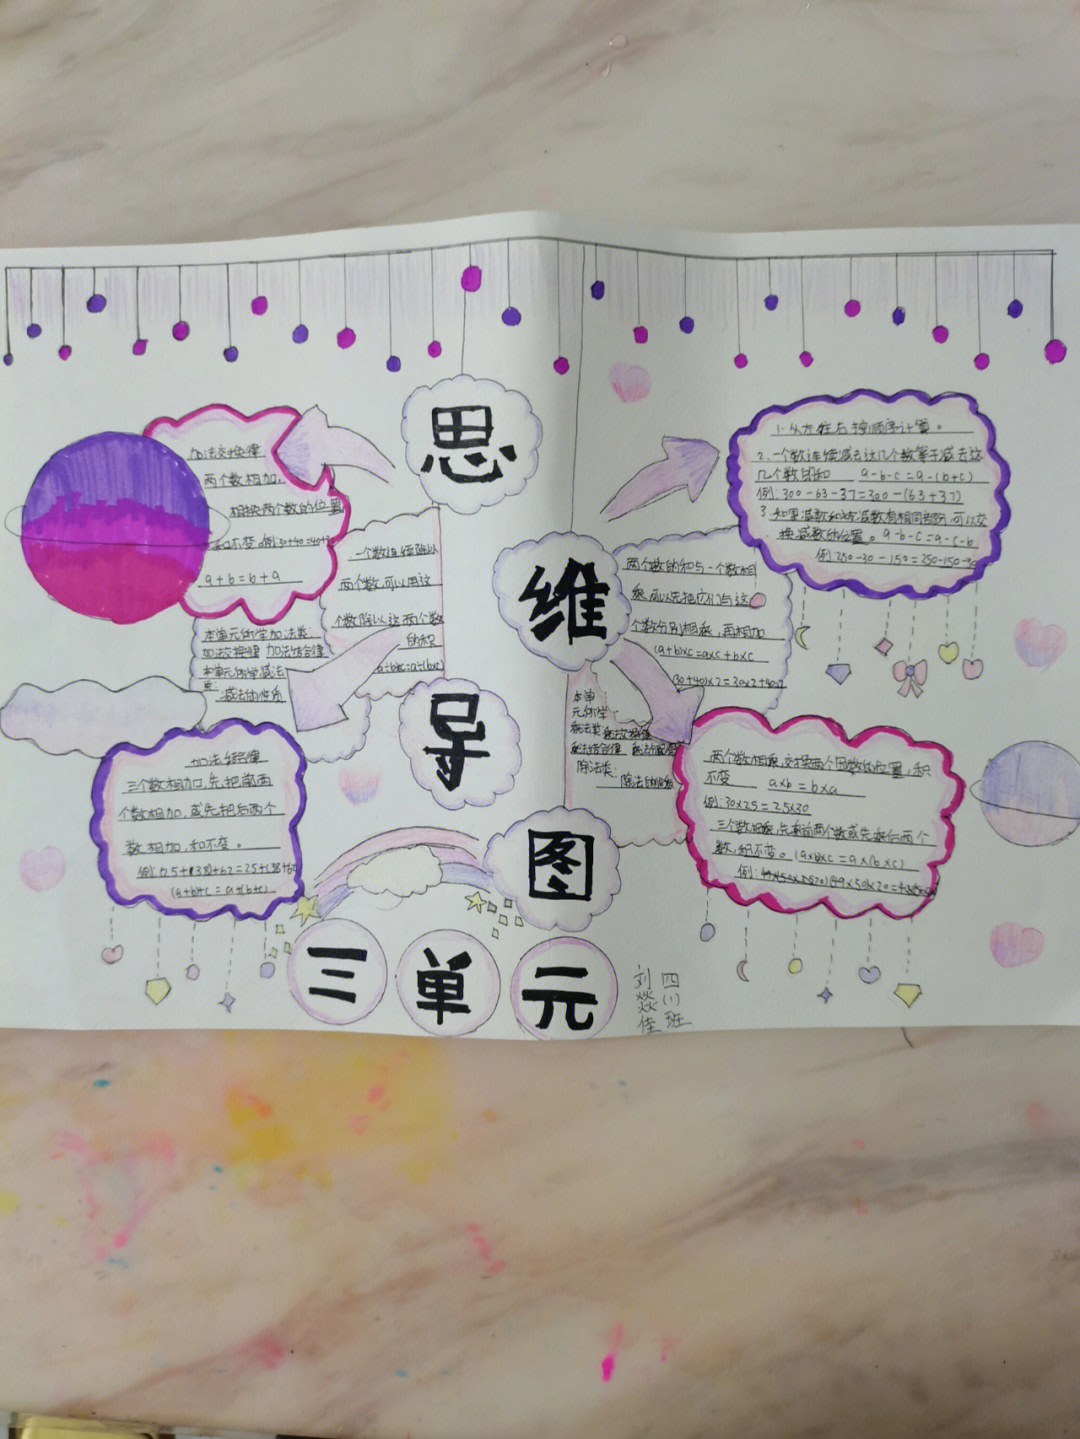 思
维
导
图
三单元
四(1)班
刘燚佳
加法交换律
两个数相加,
相换两个数的位置
和不变。例:30+40=40+30
a+b=b+a
一个数连续除以
两个数,可以用这
个数除以这两个数
的积
a÷b÷c=a÷(b×c)
本单元所学加法类
加法交换律 加法结合律
本单元所学减法
类:
减法的性质
加法结合律
三个数相加,先把前两
个数相加,或先把后两个
数相加,和不变。
(a+b)+c=a+(b+c)
1.从左往右按顺序计算。
2.一个数连续减去这几个数等于减去这
几个数的和 a-b-c=a-(b+c)
例:300-63-37=300-(63+37)
3.如果减数和被减数有相同部分,可以交
换减数的位置。a-b-c=a-c-b
例:250-30-150=250-150-30
两个数的和与一个数相
乘,可以先把它们与这
个数分别相乘,再相加
(a+b)×c=a×c+b×c
(30+40)×2=30×2+40×2
本单
元所学
乘法类 乘法交换律
乘法结合律 乘法分配律
除法类:
除法的性质
两个数相乘,交换两个因数的位置,积
不变 a×b=b×a
例:30×25=25×30
三个数相乘,先乘前两个数或先乘后两个
数,积不变。(a×b×c=a×(b×c)